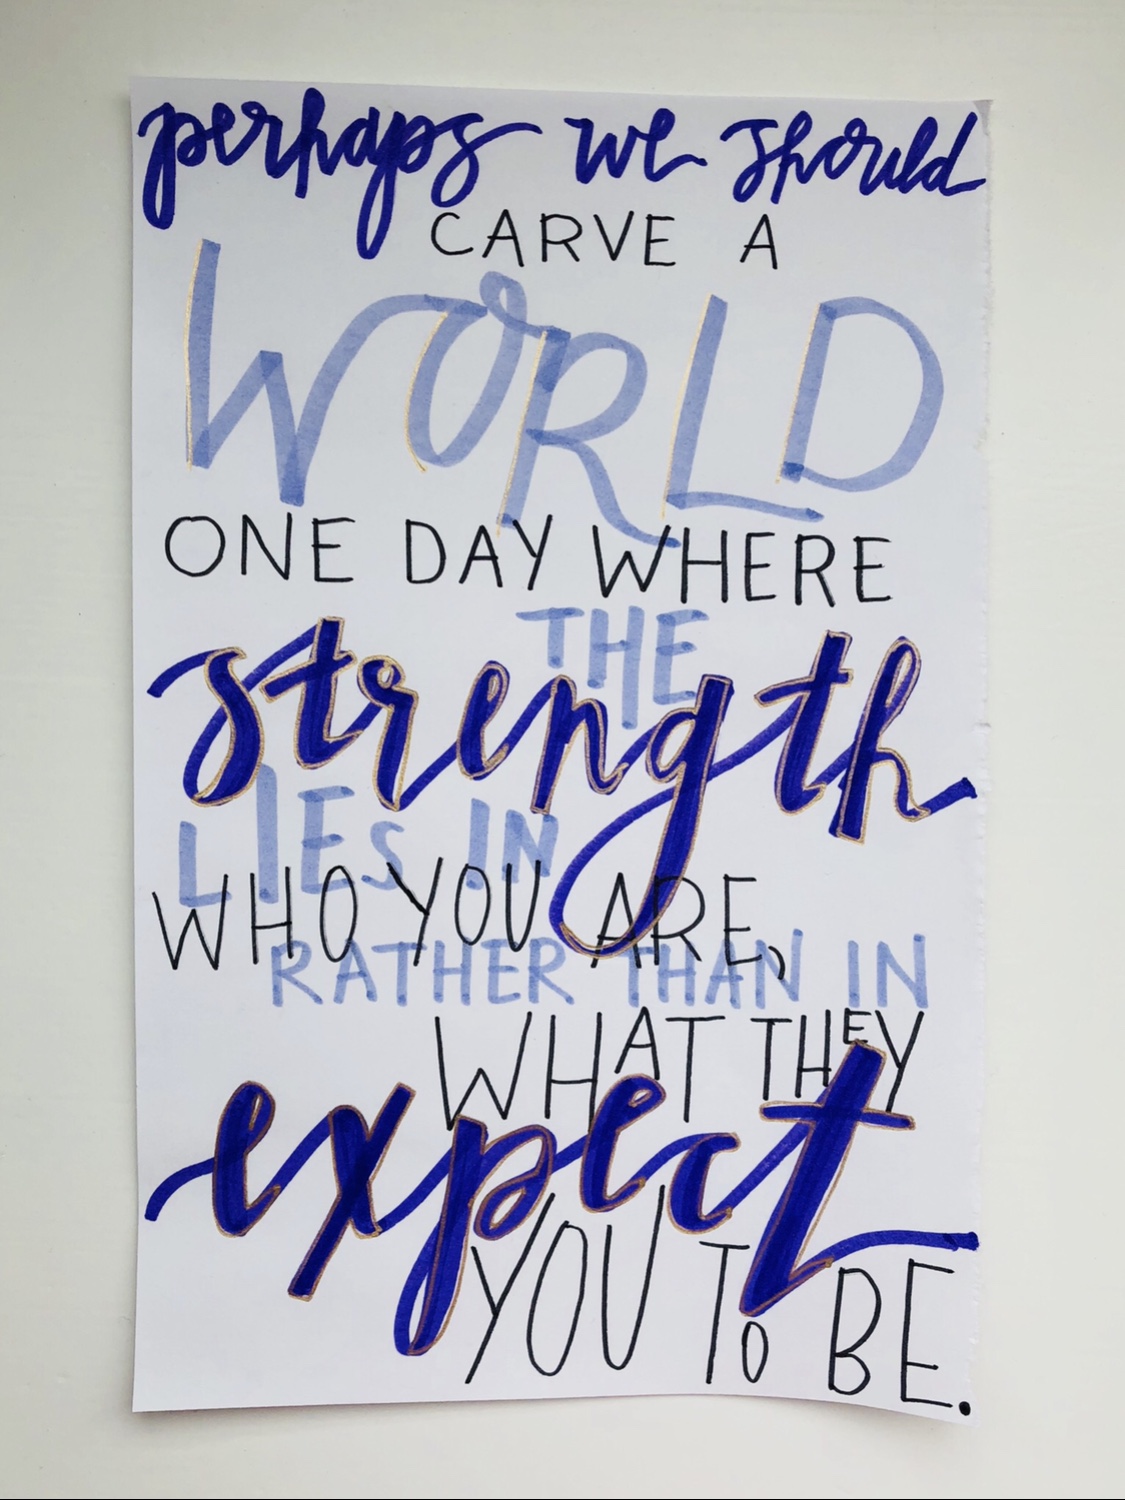 perhaps we should
CARVE A
WORLD
ONE DAY WHERE
THE
strength
LIES IN
WHO YOU ARE,
RATHER THAN IN
WHAT THEY
expect
YOU TO BE.